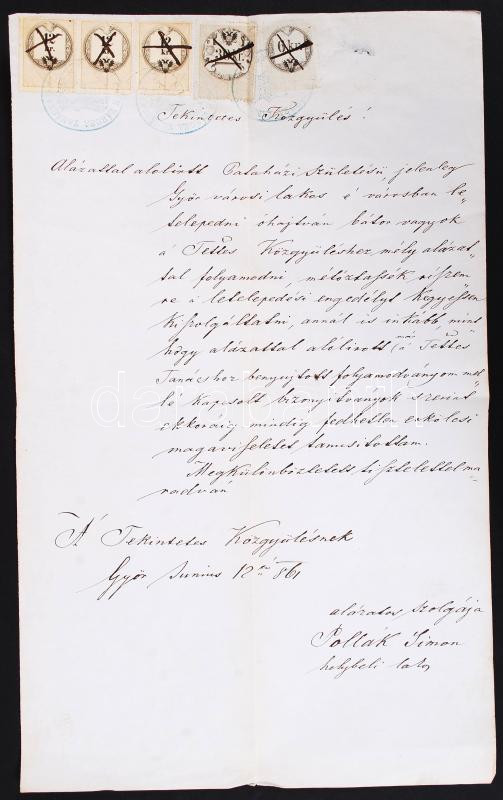 12 kr.
12 kr.
12 kr.
kr.
6 kr.
Tekintetes Közgyülés!
Alázattal alolirott Pataházi születésü, jelenleg
Győr városi lakos é városban le-
telepedni óhajtván bátor vagyok
a Tettes Közgyüléshez mély alázat-
tal folyamodni, méltóztassék részem-
re a letelepedési engedélyt kegyessen
kiszolgáltatni, annál is inkább, mint-
hogy alázattal alólirott már a Tettes
Tanácshoz benyujtott folyamodványom mel-
lé kapcsolt bizonyitványok szerint
ekkoráig mindig fedhetlen erkölcsi
magaviseletet tanusitottam.
Megkülönböztetett tisztelettel ma-
radván
A Tekintetes Közgyülésnek
Győr Junius 12én 861
alázatos szolgája
Pollák Simon
helybeli lakos
darabanth